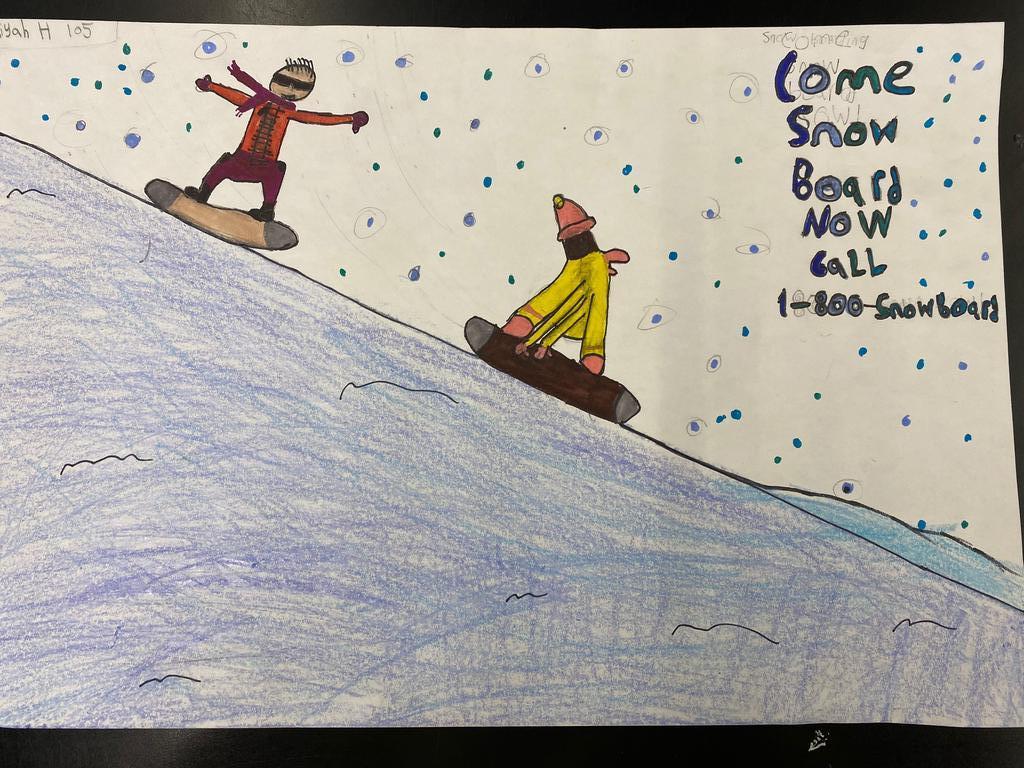 yah H 105
Come
Snow
Board
NOW
CaLL
1-800-Snowboard